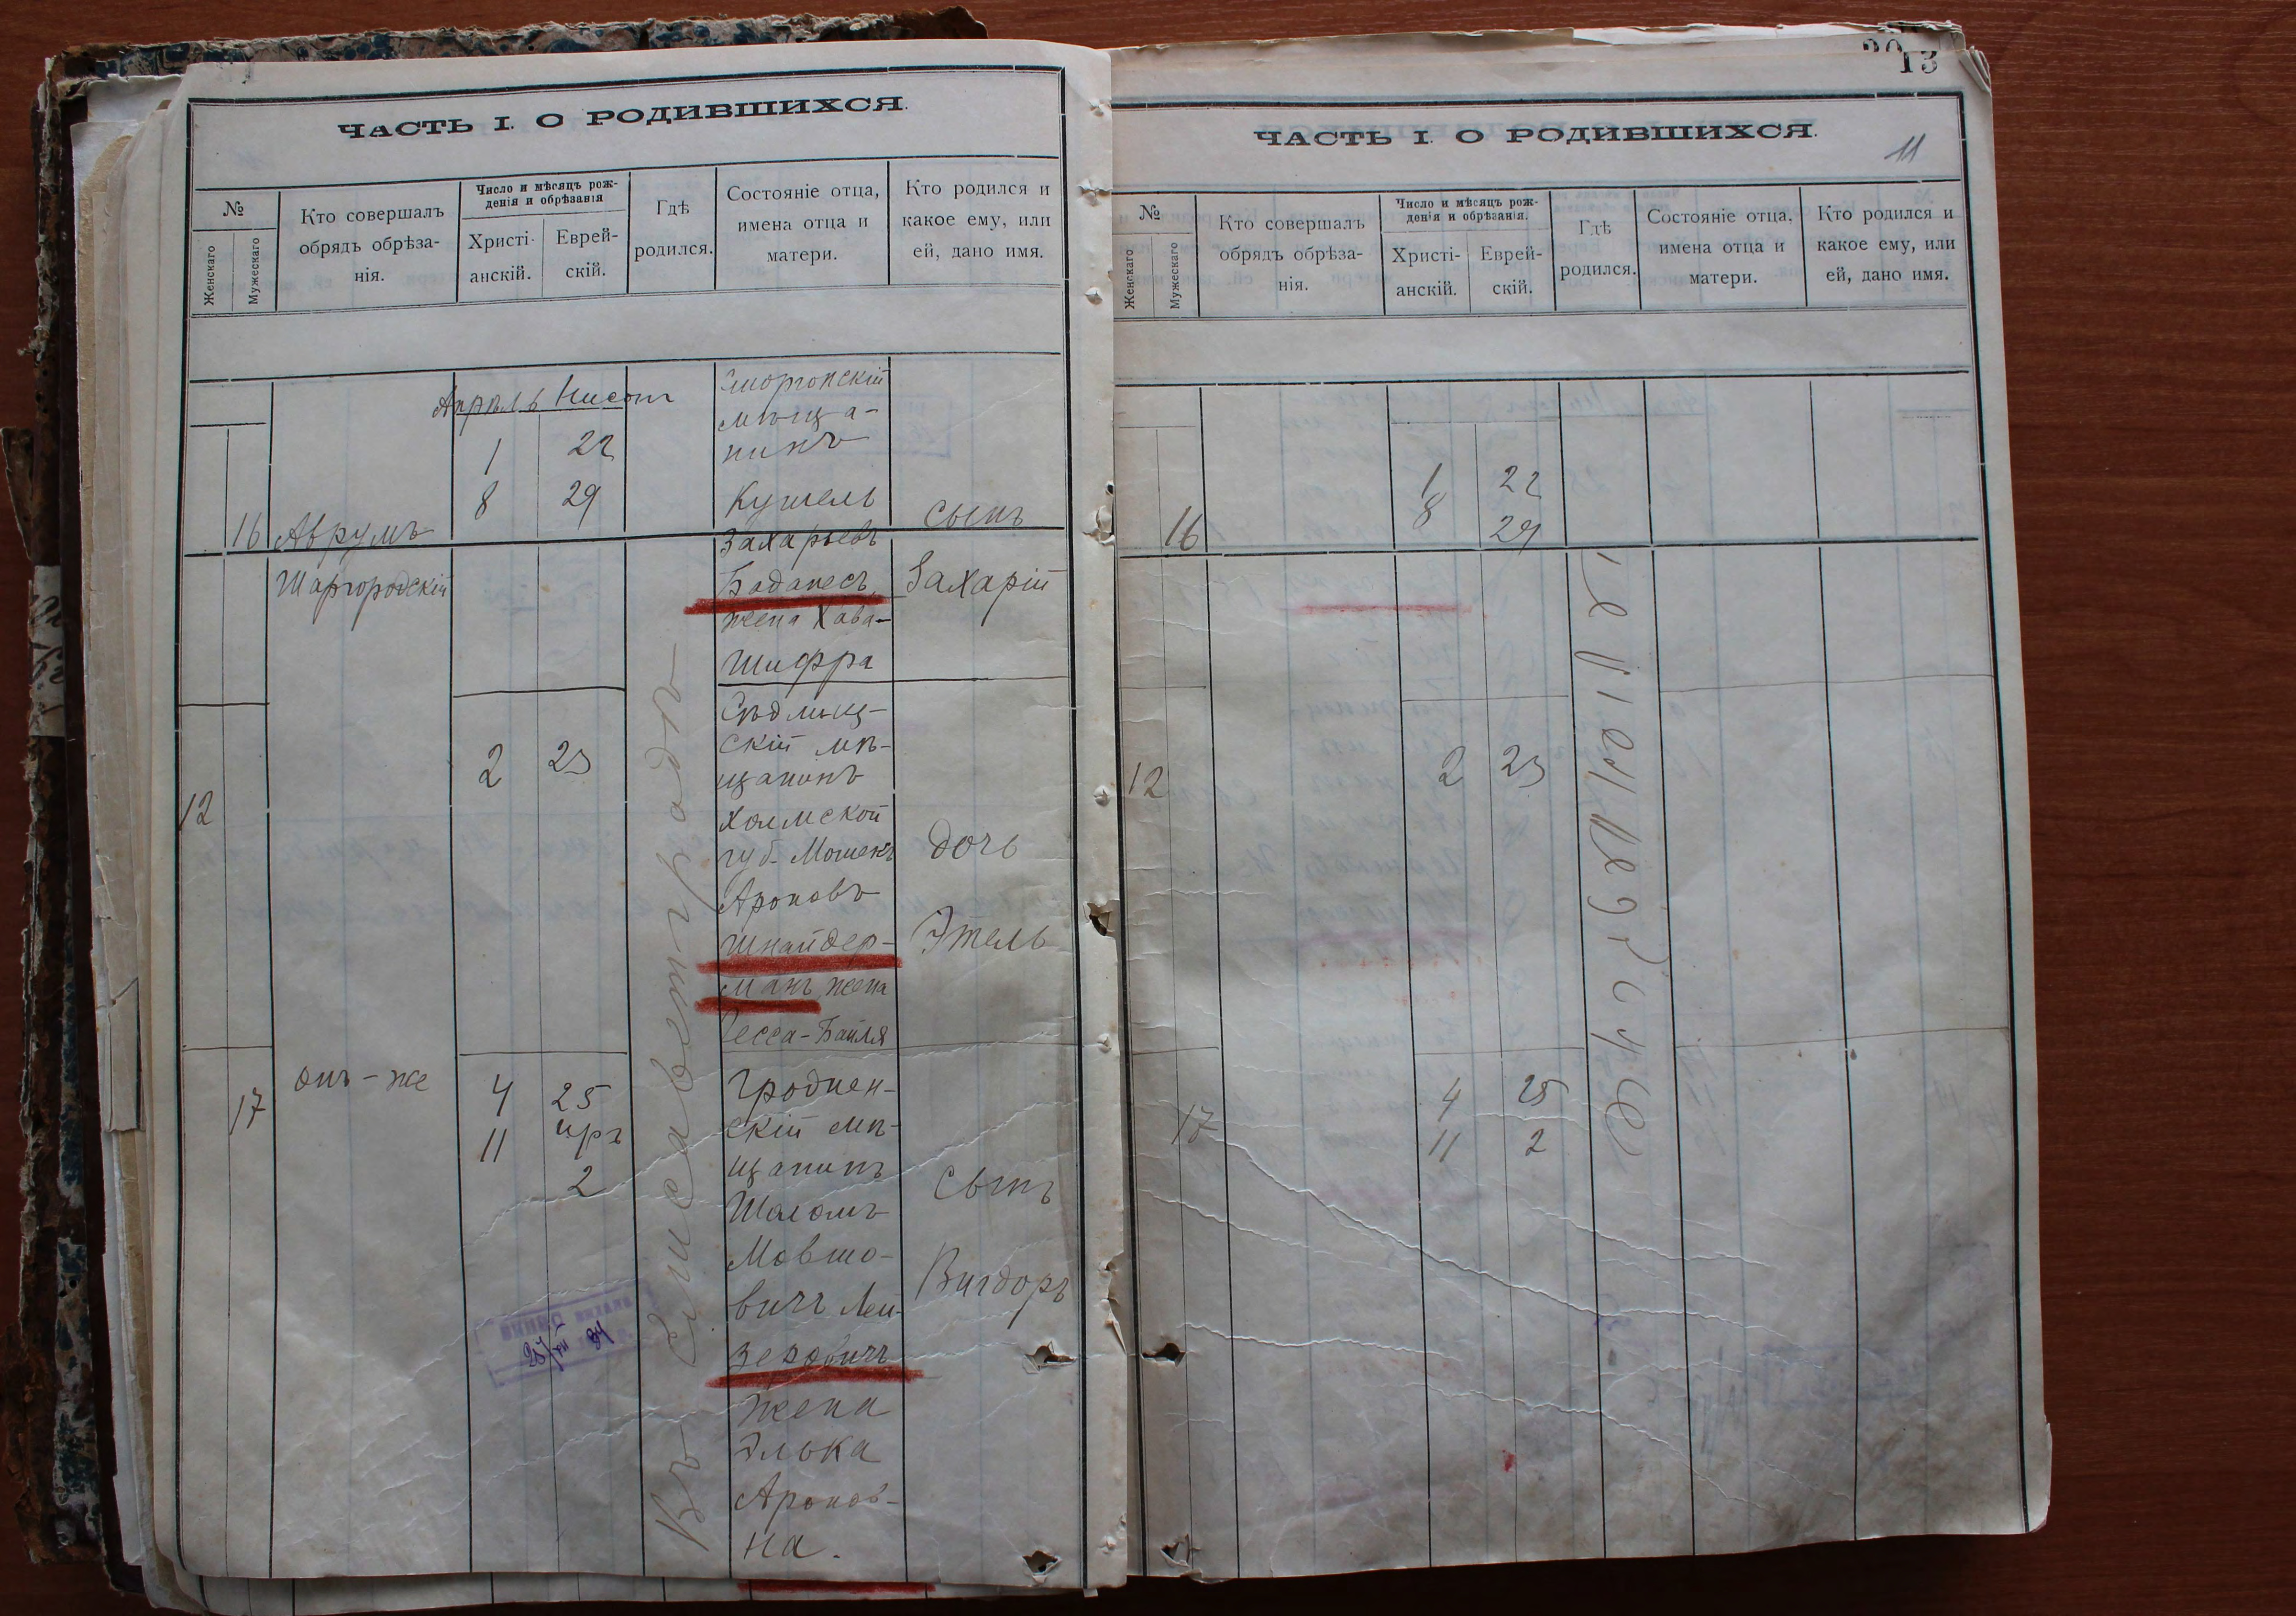 ЧАСТЬ I. О РОДИВШИХСЯ.
№
Женскаго
Мужескаго
Кто совершалъ
обрядъ обрѣза-
нія.
Число и мѣсяцъ рож-
денія и обрѣзанія
Христі-
анскій.
Еврей-
скій.
Гдѣ
родился.
Состояніе отца,
имена отца и
матери.
Кто родился и
какое ему, или
ей, дано имя.
16
Аврумъ
Шаргородскій
Апрѣль Нисонъ
1 22
8 29
Въ Елисаветградѣ
Сморгонскій
мѣща-
нинъ
Кушель
Захарьевъ
Баданесъ,
жена Хава-
Шифра
сынъ
Захарій
12
2 23
скій мѣ-
щанинъ
Холмской
губ. Мошекъ
Ароновъ
Шнайдер-
манъ жена
Песса-Байля
дочь
Этель
17
онъ-же
4 25
11 іяръ
2
Гроднен-
скій мѣ-
щанинъ
Шоломъ
Мовшо-
вичъ Лей-
зеровичъ
жена
Элька
Аронов-
на.
сынъ
Вигдоръ
13
11
ЧАСТЬ I. О РОДИВШИХСЯ.
№
Женскаго
Мужескаго
Кто совершалъ
обрядъ обрѣза-
нія.
Число и мѣсяцъ рож-
денія и обрѣзанія.
Христі-
анскій.
Еврей-
скій.
Гдѣ
родился.
Состояніе отца,
имена отца и
матери.
Кто родился и
какое ему, или
ей, дано имя.
16
1 22
8 29
12
2 23
17
4 25
11 2